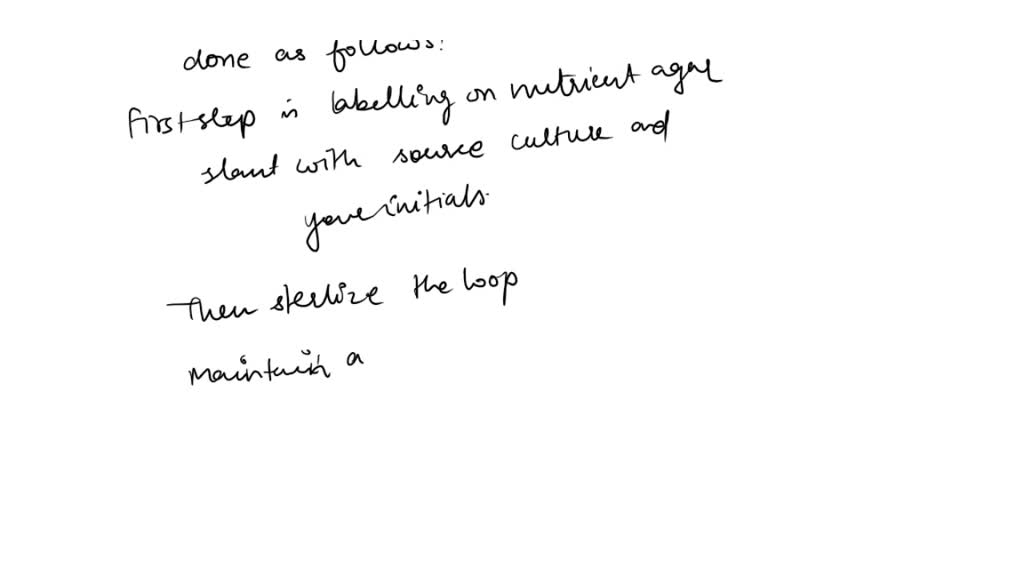 done as follows:
first step is labelling on nutrient agar
slant with source culture and
your initials.
Then sterlize the loop
maintain a